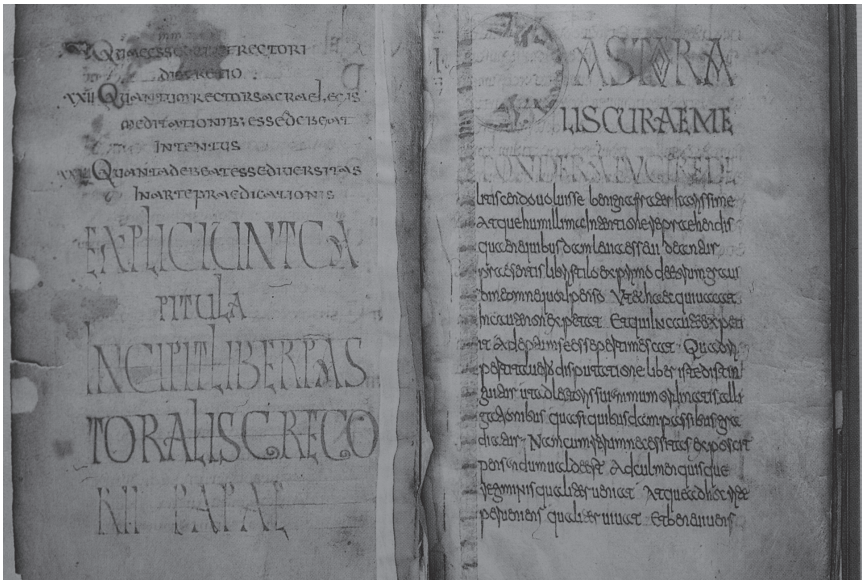 Quae esse debeat rectori
discretio
XXII Quantum rector sacrae legis
meditationib; esse debeat
intentus
Quanta debeat esse diversitas
in arte praedicationis
EXPLICIUNT CA
PITULA
INCIPIT LIBER PAS
TORALIS GREGO
RII PAPAE
PASTORA
LIS CURAE ME
PONDERA FUGERE DE
litiscendo uoluisse benigne frater karissime
atque humillima intentione repraehendis
quae ne quibusdam leuia esse uideantur
praesentis libri stilo exprimo de eorum graui
dine omne quod penso Ut et haec qui uacat
incaute non expetat Et qui incaute expeti
it adeptum se esse pertimescat Quadri
pertita uero disputatione liber iste distin
guitur ut ad lectoris sui animum ordinatis alli
gationibus quasi quibusdam passibus gra
diatur Nam cum rerum necessitas exposcit
pensandum ualde est Ad culmen quisque
regiminis qualiter ueniat Atque ad hoc rite
perueniens qualiter uiuat Et bene uiuens